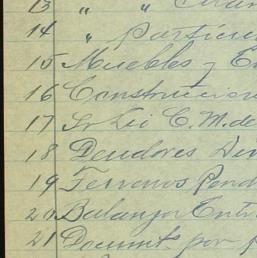 13 " "
14 " Particu
15 Muebles y
16 Construccion
17 Sr Lic C. M. de
18 Deudores
19 Terrenos
20 Balanzor Entr
21 Documt por